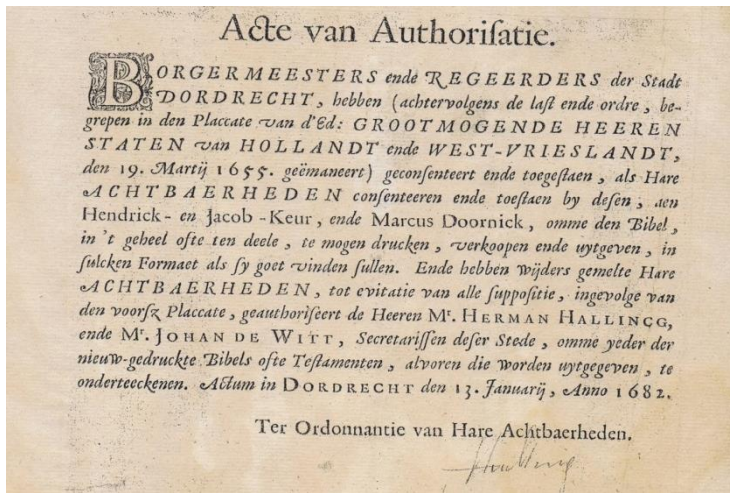 Acte van Authoriſatie.
BORGERMEESTERS ende REGEERDERS der Stadt
DORDRECHT, hebben (achtervolgens de laſt ende ordre, be-
grepen in den Placcate van d'Ed: GROOTMOGENDE HEEREN
STATEN van HOLLANDT ende WEST-VRIESLANDT,
den 19. Martij 1655. geëmaneert) geconſenteert ende toegeſtaen, als Hare
ACHTBAERHEDEN conſenteeren ende toeſtaen by deſen, aen
Hendrick- en Jacob-Keur, ende Marcus Doornick, omme den Bibel,
in 't geheel ofte ten deele, te mogen drucken, verkoopen ende uytgeven, in
ſulcken Formaet als ſy goet vinden ſullen. Ende hebben wijders gemelte Hare
ACHTBAERHEDEN, tot evitatie van alle ſuppoſitie, ingevolge van
den voorſz Placcate, geauthoriſeert de Heeren Mr. HERMAN HALLINCG,
ende Mr. JOHAN DE WITT, Secretariſſen deſer Stede, omme yeder der
nieuw-gedruckte Bibels ofte Teſtamenten, alvoren die worden uytgegeven, te
onderteeckenen. Actum in DORDRECHT den 13. Januarij, Anno 1682.
Ter Ordonnantie van Hare Achtbaerheden.